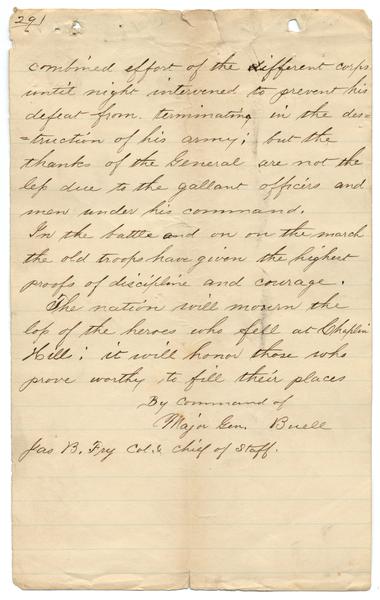 291
combined effort of the different corps
until night intervened to prevent his
defeat from terminating in the des-
=truction of his army; but the
thanks of the General are not the
less due to the gallant officers and
men under his command.
In the battle and on on the march
the old troops have given the highest
proofs of discipline and courage.
The nation will mourn the
loss of the heroes who fell at Chaplin
Hills; it will honor those who
prove worthy to fill their places
By command of
Major Gen. Buell
Jas. B. Fry Col. & Chief of Staff.